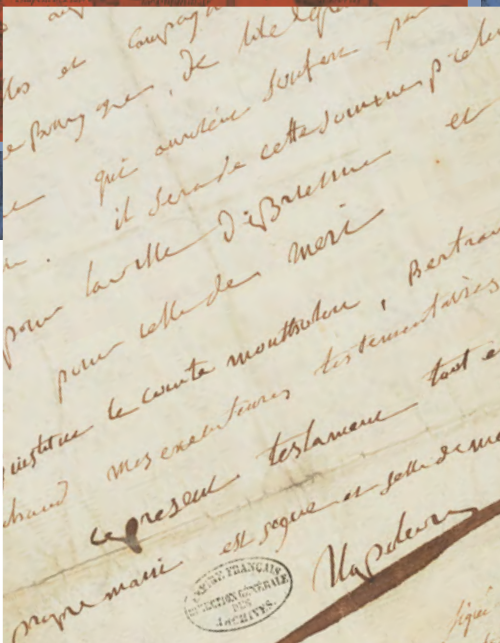 et campagn
de
qui auroient souffert pa
il sera de cette somme prele
pour la ville de Brienne et
pour celle de meri
institue le comte montholon, Bertran
chand mes executeurs testamentaires
ce present testament tout e
propre main est signe et selle de me
Napoleon
EMPIRE FRANÇAIS
DIRECTION GÉNÉRALE
DES
ARCHIVES.
signé